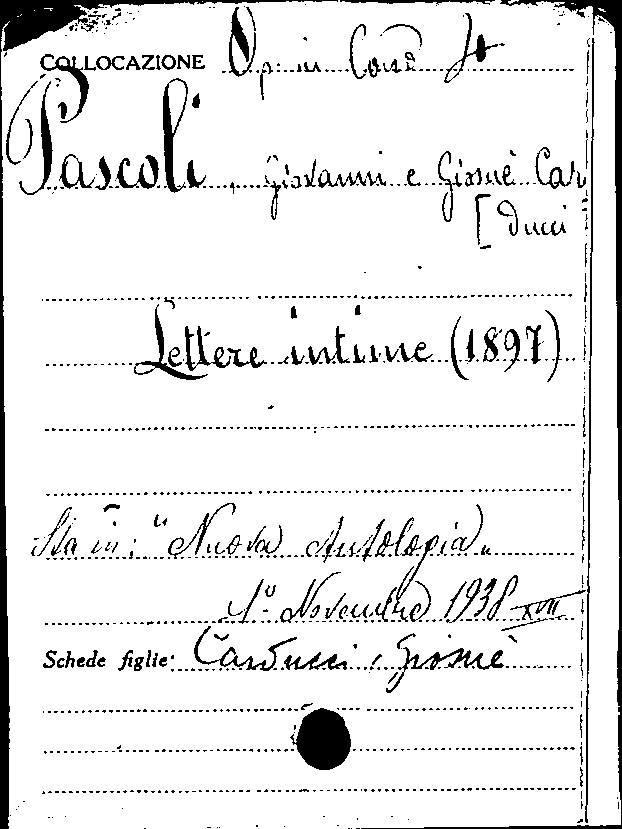 COLLOCAZIONE Op. in Cons
Pascoli, Giovanni e Giosuè Car
[ducci
Lettere intime (1897)
Sta in: "Nuova Antologia„
1° Novembre 1938 XVII
Schede figlie: Carducci, Giosuè